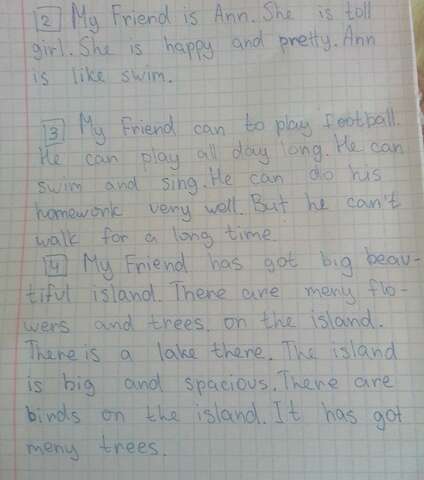 2 My Friend is Ann. She is toll
girl. She is happy and pretty. Ann
is like swim.
3 My Friend can to play football.
He can play all day long. He can
swim and sing. He can do his
homework very well. But he can't
walk for a long time.
4 My Friend has got big beau-
tiful island. There are meny flo-
wers and trees. on the island.
There is a lake there. The island
is big and spacious. There are
birds on the island. It has got
meny trees.